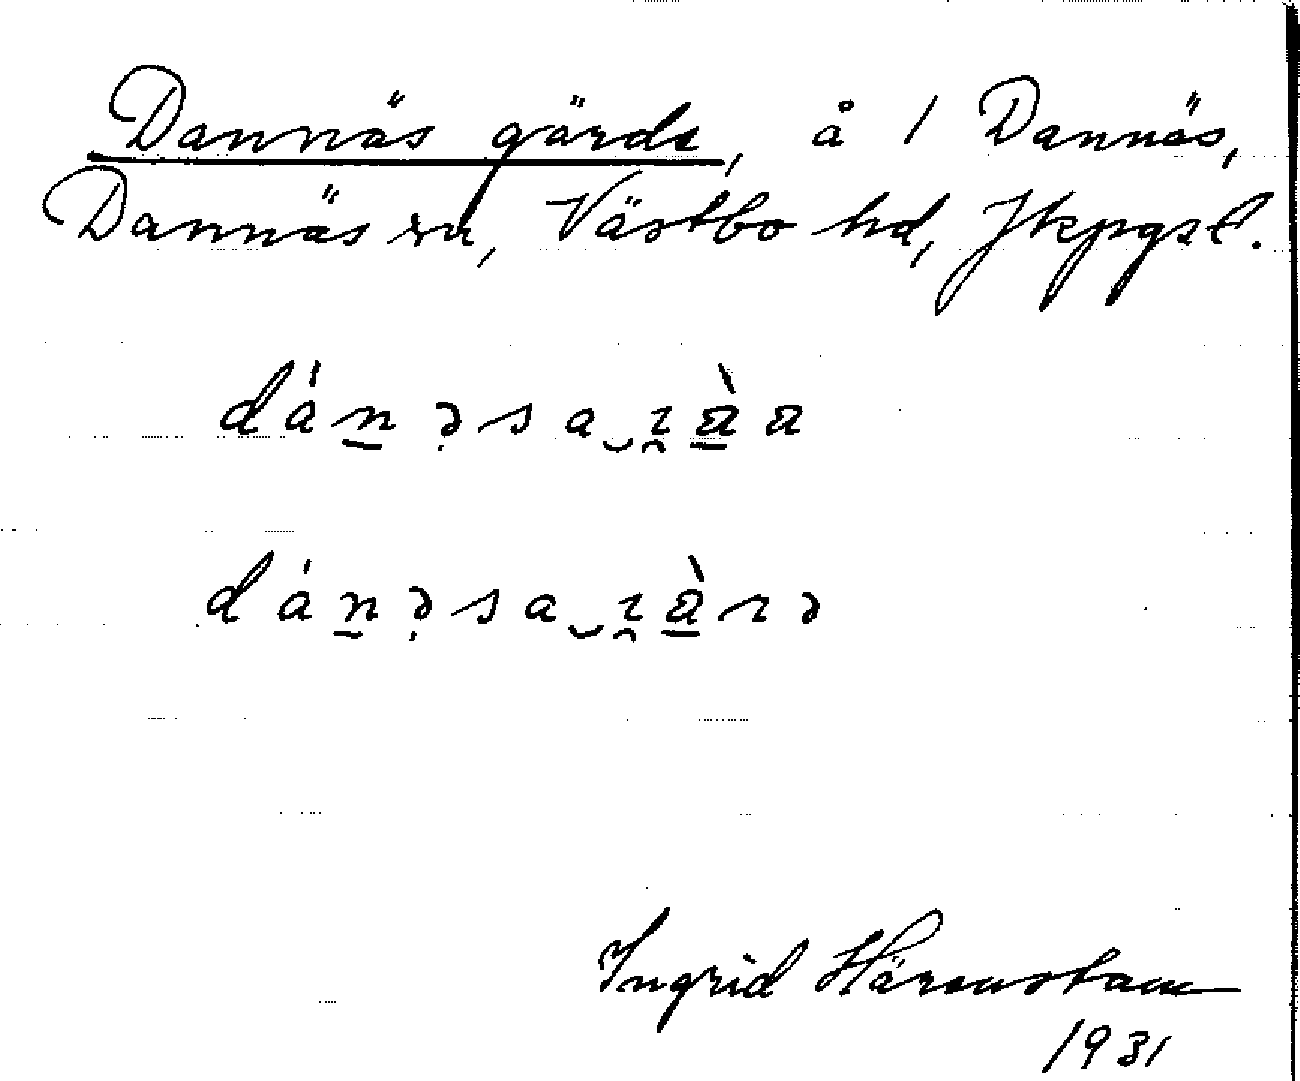 Dannäs gärde, å 1 Dannäs,
Dannäs sn, Västbo hd, Jkpgs l.
dán̲ə̣sa‿ɿ̯à̲a
dán̲ə̣sa‿ɿ̯à̲ɿə
Ingrid Härenstam
1931